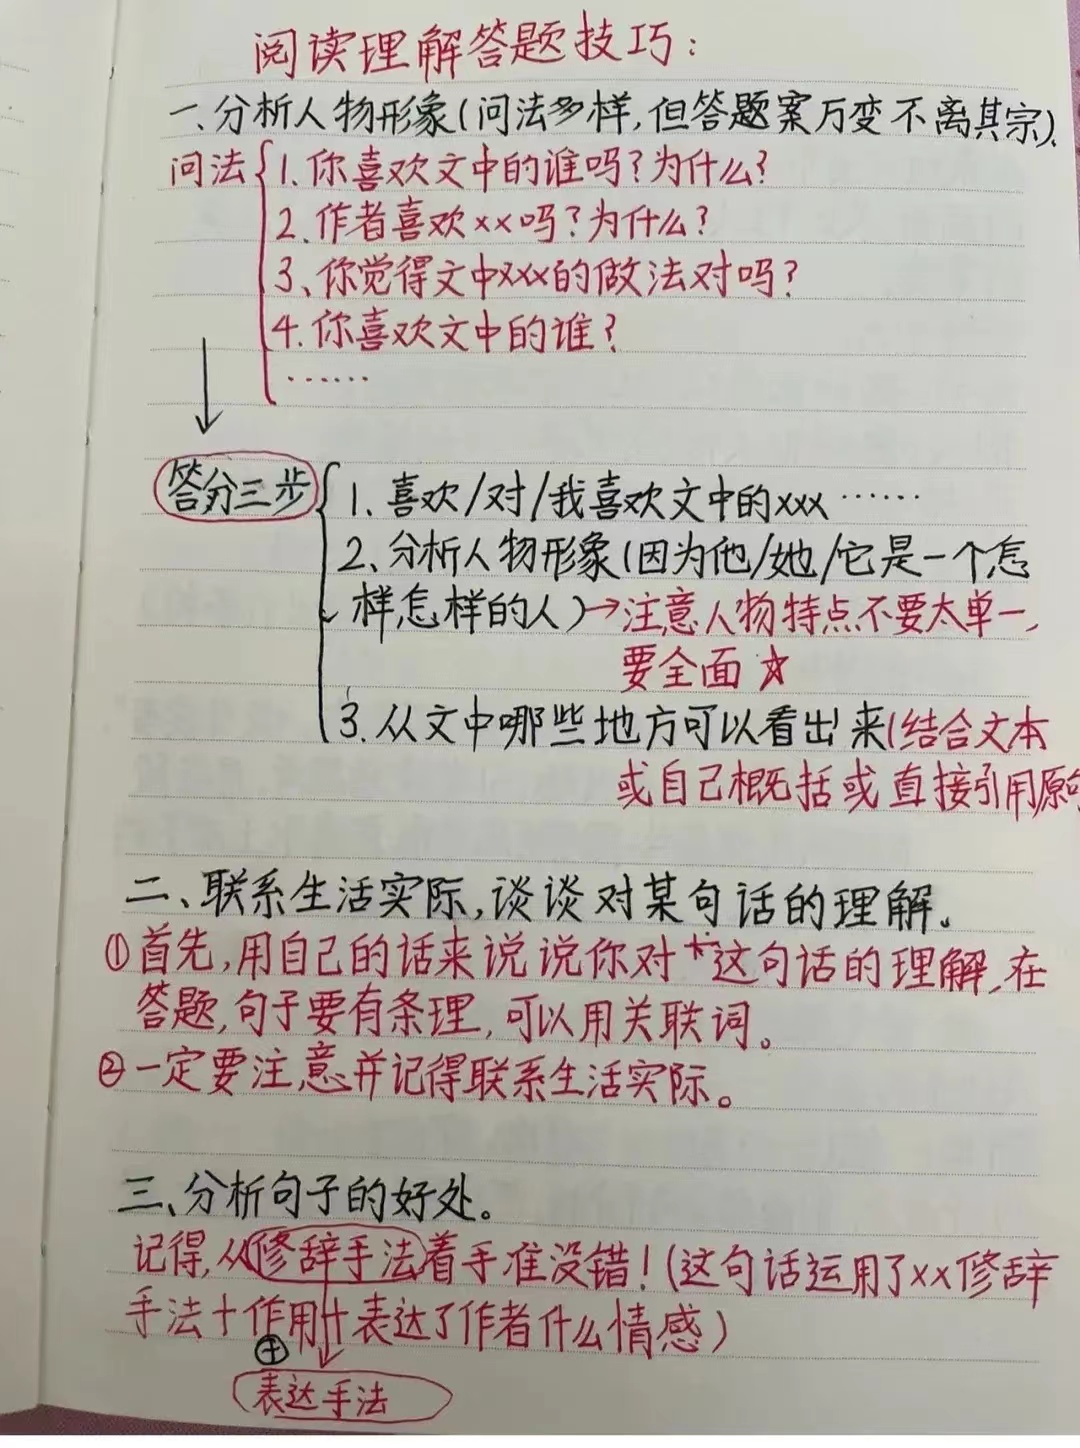 阅读理解答题技巧：
一、分析人物形象(问法多样,但答题案万变不离其宗).
问法
1.你喜欢文中的谁吗?为什么?
2.作者喜欢××吗?为什么?
3、你觉得文中xxx的做法对吗?
4.你喜欢文中的谁?
……
答分三步
1.喜欢/对/我喜欢文中的xxx……
2、分析人物形象(因为他/她/它是一个怎
样怎样的人)→注意人物特点不要太单一,
要全面☆
3.从文中哪些地方可以看出来(结合文本
或自己概括或直接引用原句
二、联系生活实际,谈谈对某句话的理解。
①首先,用自己的话来说说你对**这句话的理解,在
答题,句子要有条理,可以用关联词。
②一定要注意并记得联系生活实际。
三、分析句子的好处。
记得,从修辞手法着手准没错!(这句话运用了××修辞
手法+作用+表达了作者什么情感)
+
表达手法